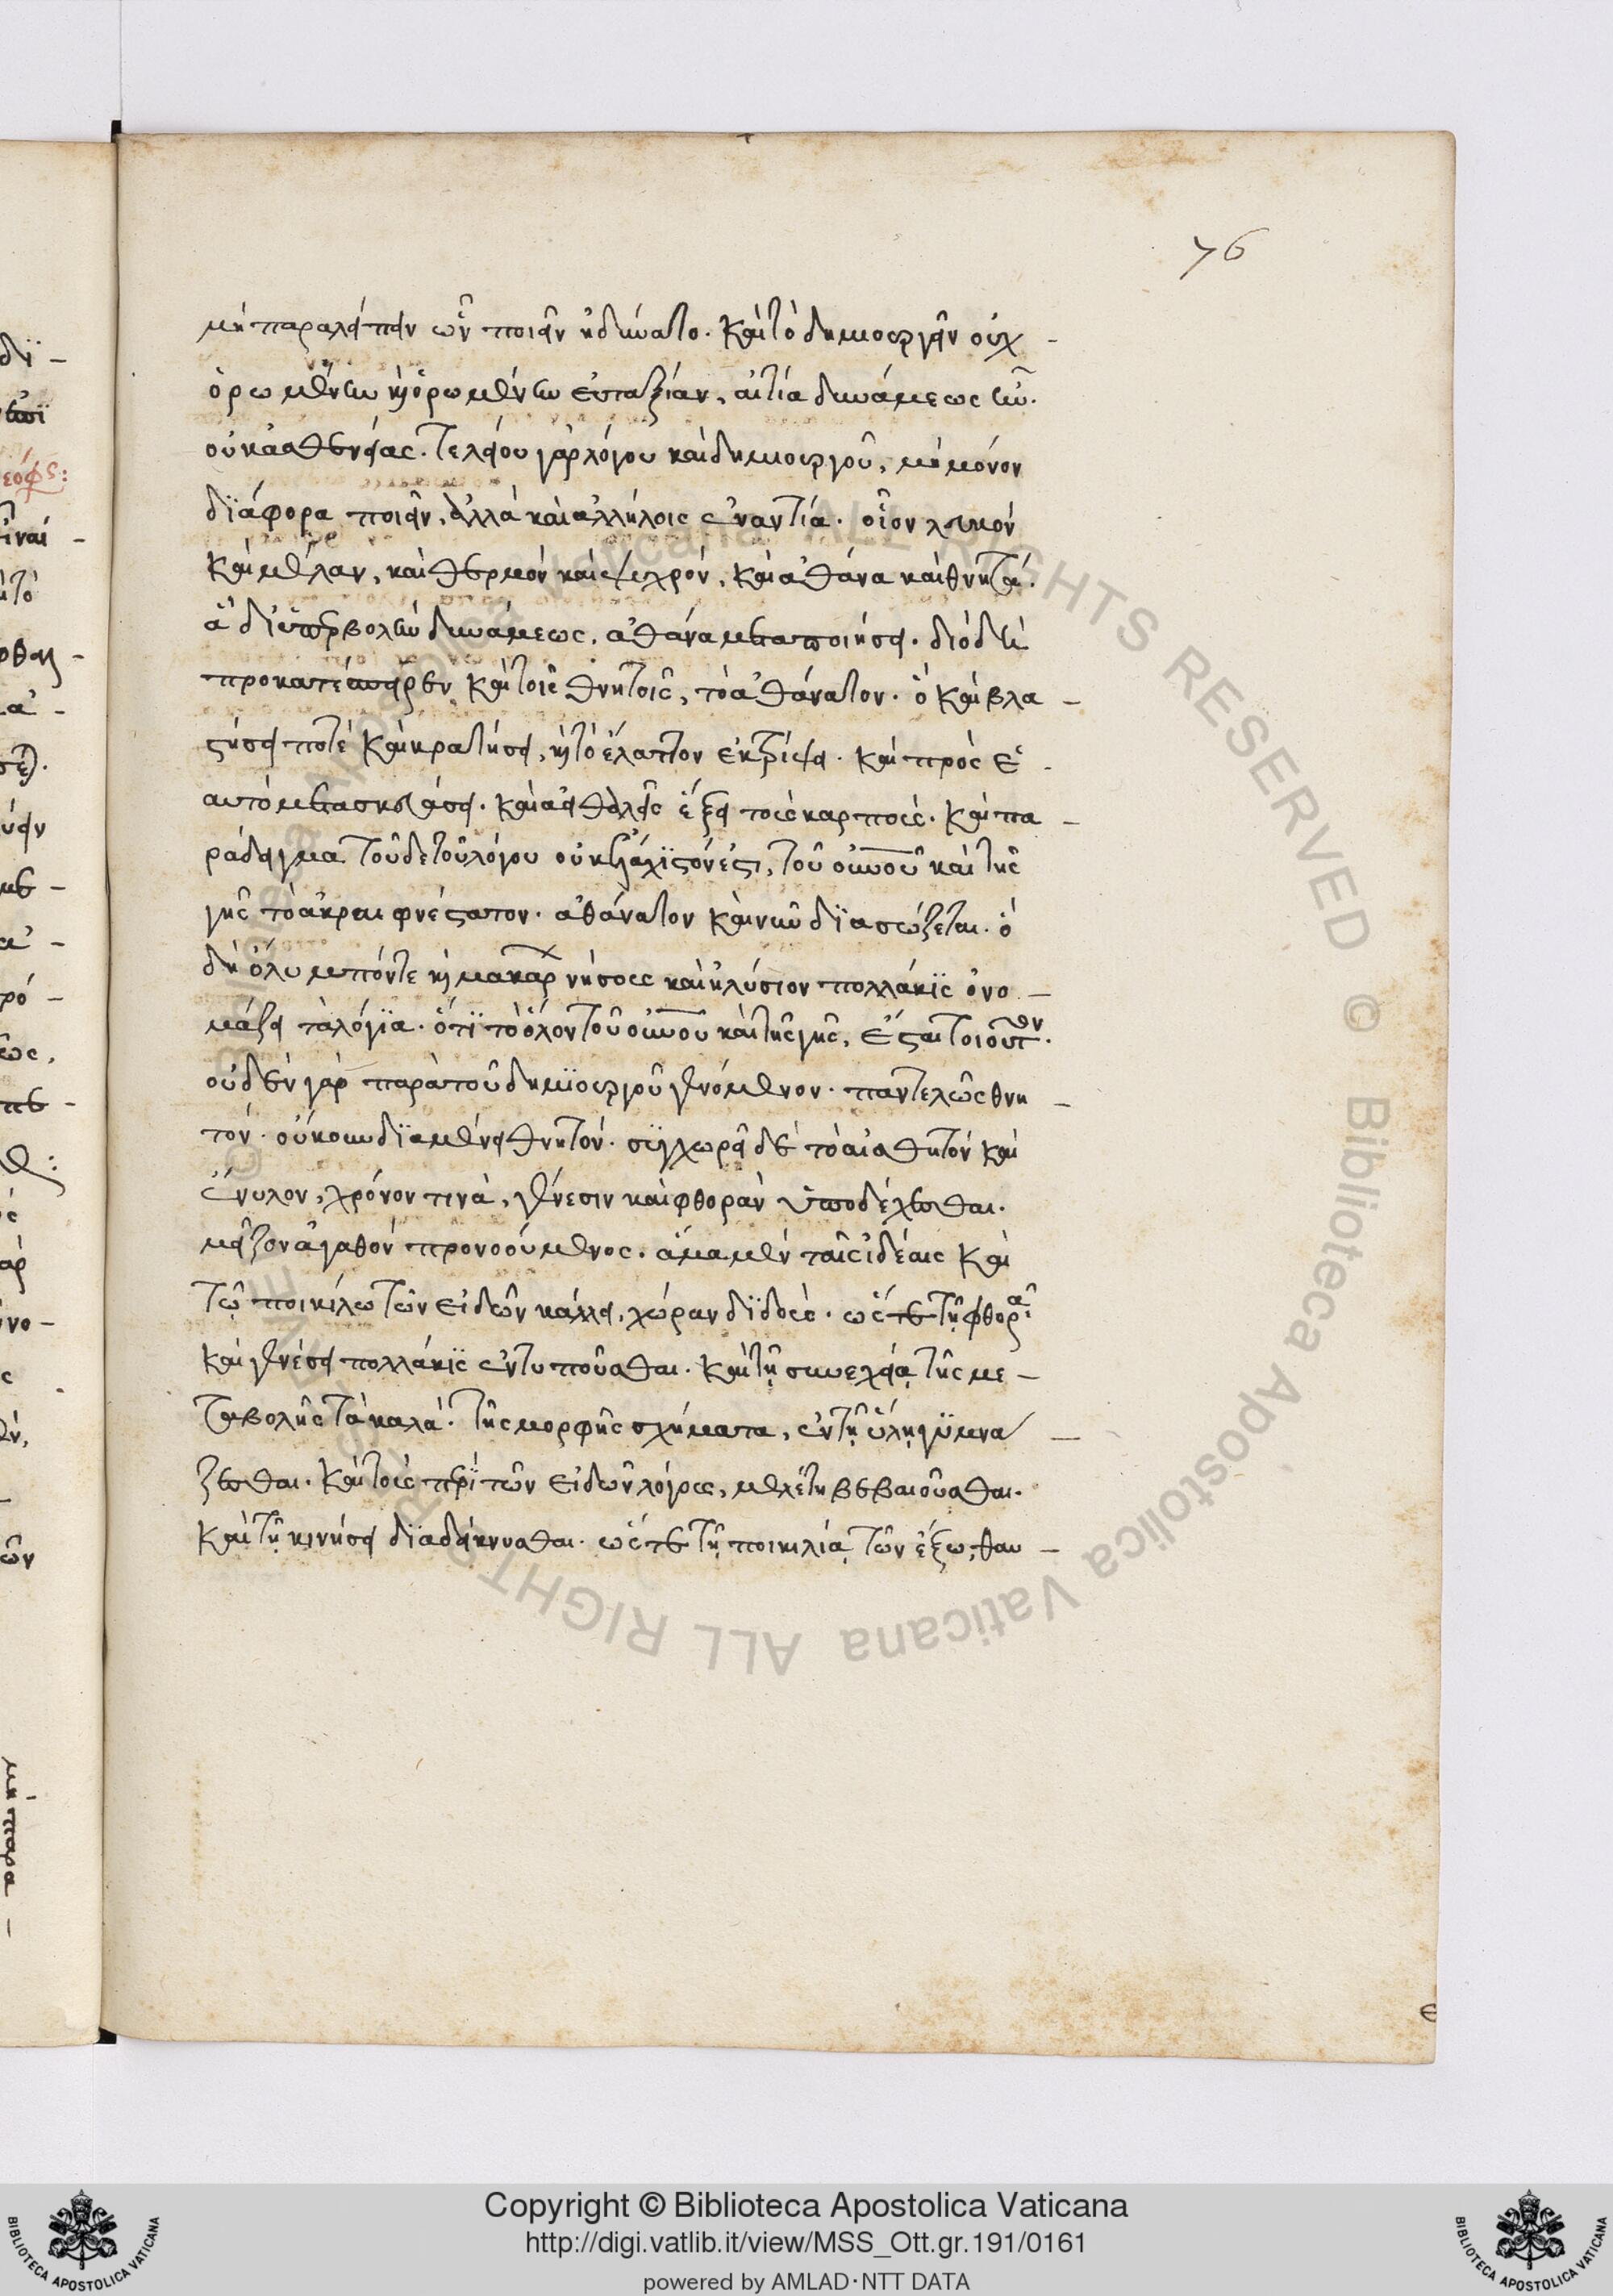 76
μὴ παραλείπειν ὧν ποιεῖν ἠδύνατο. καὶ τὸ δημιουργεῖν οὐχ
ὁρωμένην καὶ ὁρωμένην εὐταξίαν, αἰτία δυνάμεως ἦν.
οὐκ ἀσθενείας. τελείου γὰρ λόγου καὶ δημιουργοῦ, μὴ μόνον
διάφορα ποιεῖν, ἀλλὰ καὶ ἀλλήλοις ἐναντία. οἷον λευκὸν
καὶ μέλαν, καὶ θερμὸν καὶ ψυχρόν, καὶ ἀθάνα καὶ θνητά.
ἃ δι' ὑπερβολὴν δυνάμεως, ἀθάνα μεταποιήσει. διὸ δὴ
προκατέσπειρεν καὶ τοῖς θνητοῖς, τὸ ἀθάνατον. ὃ καὶ βλα -
στήσει ποτὲ καὶ κρατήσει, καὶ τὸ ἔλαττον ἐκτρίψει. καὶ πρὸς ἑ -
αυτὸ μετασκευάσει. καὶ ἀειθαλεῖς ἕξει τοὺς καρπούς. καὶ πα -
ράδειγμα τοῦδε τοῦ λόγου οὐκ ἐλάχιστόν ἐστι, τοῦ οὐνοῦ καὶ τῆς
γῆς τὸ ἀκραιφνέστατον. ἀθάνατον καὶ νῦν διασώζεται. ὃ
δὴ ὄλυμπόν τε καὶ μακάρ νήσους καὶ ἠλύσιον πολλάκις ὀνο -
μάζει τὰ λόγια. ὅτι τὸ ὅλον τοῦ οὐνοῦ καὶ τῆς γῆς, ἔσται τοιοῦτον.
οὐδὲν γὰρ παρὰ τοῦ δημιουργοῦ γενόμενον. παντελῶς θνη -
τόν. οὐκοῦν διαμένει θνητόν. συγχωρεῖ δὲ τὸ αἰσθητὸν καὶ
ἔνυλον, χρόνον τινὰ, γένεσιν καὶ φθορὰν ὑποδέχεσθαι.
μεῖζον ἀγαθὸν προνοούμενος. ἅμα μὲν ταῖς ἰδέαις καὶ
τῷ ποικίλω τῶν εἰδῶν κάλλει, χώραν διδούς. ὥστε τῇ φθορᾶι
καὶ γενέσει πολλάκις ἐντυποῦσθαι. καὶ τῇ συνεχείᾳ τῆς με -
ταβολῆς τὰ καλὰ. τῆς μορφῆς σχήματα, ἐν τῇ ὕλῃ γυμνά -
ζεσθαι. καὶ τοὺς περὶ τῶν εἰδῶν λόγους, μελέτη βεβαιοῦσθαι.
καὶ τῇ κινήσει διαδείκνυσθαι. ὥστε τῇ ποικιλίᾳ τῶν ἔξω, θαυ -
Copyright © Biblioteca Apostolica Vaticana
http://digi.vatlib.it/view/MSS_Ott.gr.191/0161
powered by AMLAD·NTT DATA